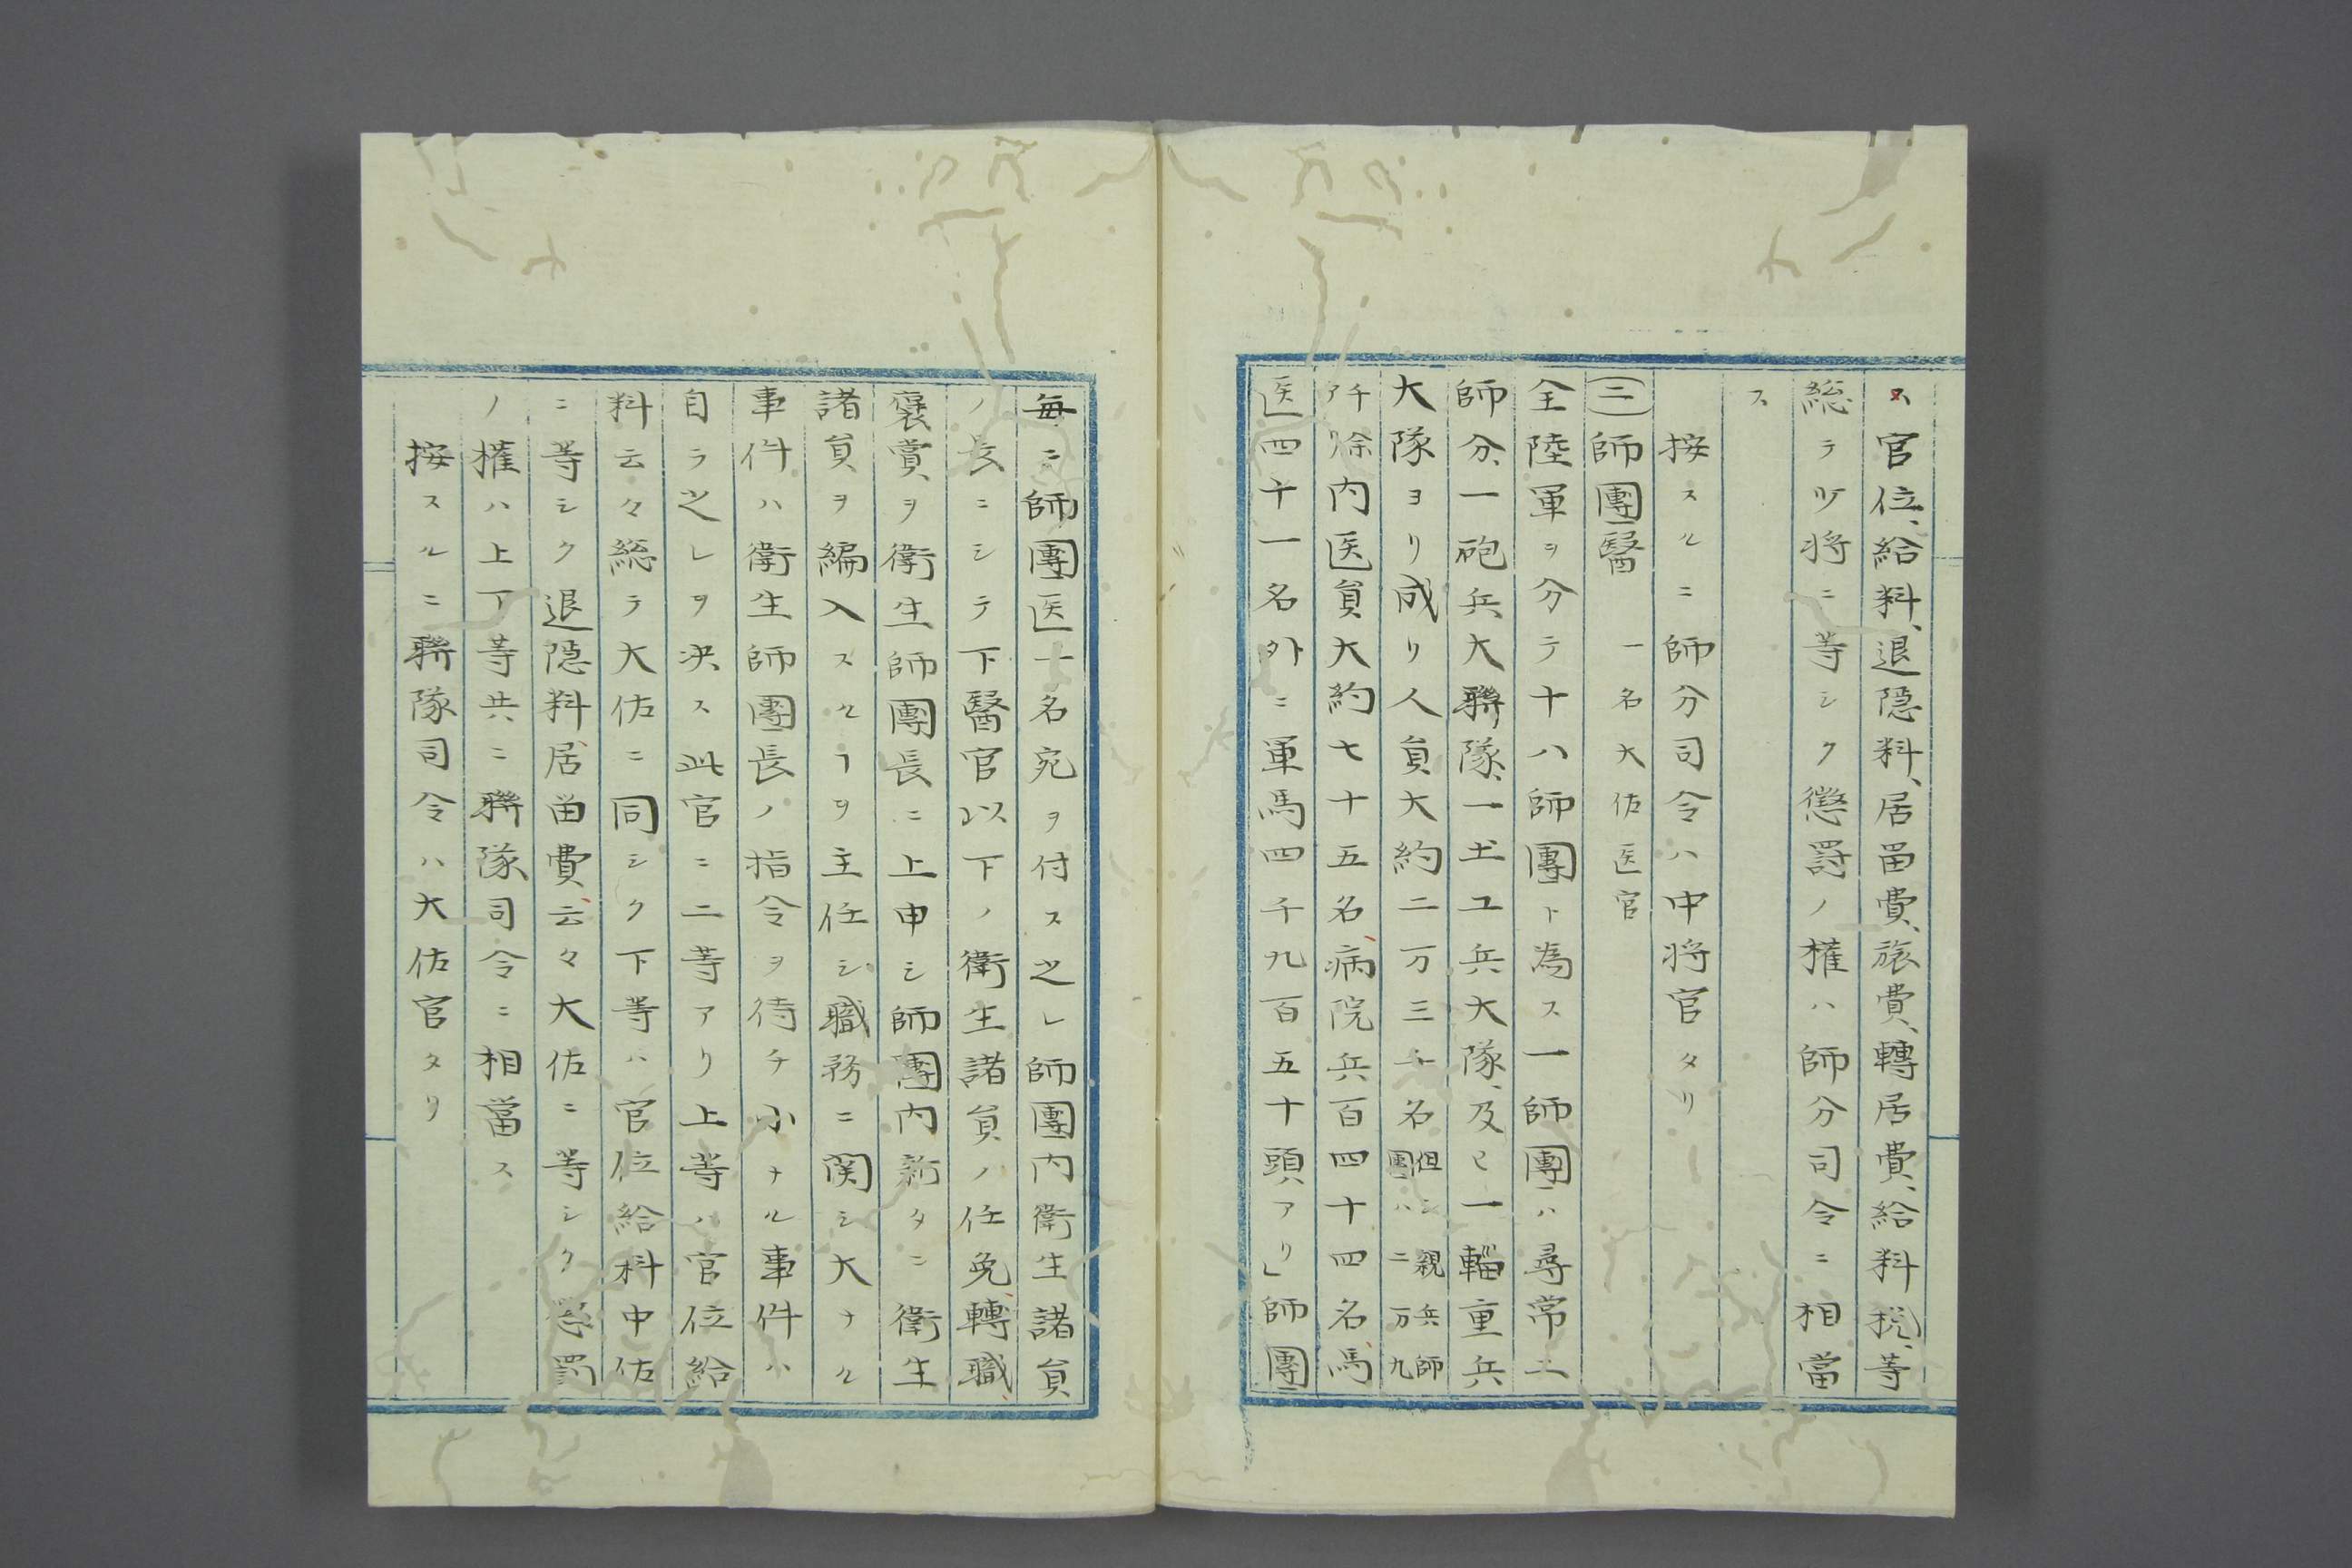 ス官位、給料、退隠料、居畄費、旅費、轉居費、給料税、等
総テ少将ニ等シク懲罸ノ権ハ師分司令ニ相當
ス
按スルニ師分司令ハ中将官タリ
(二)師團醫 一名大佐医官
全陸軍ヲ分テ十八師團ト為ス一師團ハ尋常二
師分、一砲兵大聯隊、一土工兵大隊、及ヒ一輜重兵
大隊ヨリ成リ人員大約二万三千名但シ親兵師團ハ二万九
千余アリ内医員大約七十五名病院兵百四十四名、馬
医四十一名外ニ軍馬四千九百五十頭アリ」師團
毎ニ師團医一名宛ヲ付ス之レ師團内衛生諸員
ノ長ニシテ下醫官以下ノ衛生諸員ノ任免、轉職、
褒賞ヲ衛生師團長ニ上申シ師團内新タニ衛生
諸員ヲ編入スルヿヲ主任シ職務ニ関シ大ナル
事件ハ衛生師團長ノ指令ヲ待チ小ナル事件ハ
自ラ之レヲ决ス此官ニ二等アリ上等ハ官位給
料云々総テ大佐ニ同シク下等ハ官位給料中佐
ニ等シク退隠料、居畄費、云々大佐ニ等シク懲罰
ノ権ハ上下等共ニ聯隊司令ニ相當ス
按スルニ聯隊司令ハ大佐官タリ